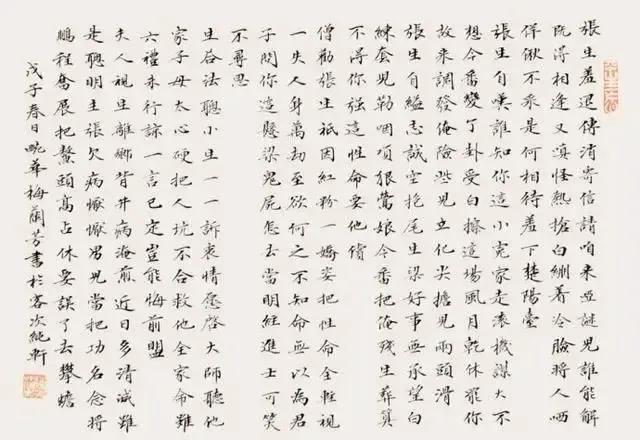 張生羞退傳消寄信請咱来亞謎兒誰能解
既得相逢又嗔怪熱搶白绷着冷臉將人哂
佯僽不乖是何相待羞下楚陽臺
張生自嘆誰知你這小冤家走滚機謀大不
想今番變了卦受白擦這場風月乾休罷你
故来調發俺險些兒立化尖擔兒兩頭滑
張生自縊志誠空抱尾生梁好事無承望白
練套兒勒咽項狠鶯娘今番把俺殘生葬算
不得你强這性命要他償
僧勸張生祇因紅粉一嬌姿把性命全輕視
一失人身萬劫至欲何之不知命無以為君
子問你這懸梁鬼屍怎去當明經進士可笑
不尋思
生答法聰小生一一訴衷情愿啓大師聽他
家子母太心硬把人坑不合救他全家命難
六禮未行諒一言已定豈能悔前盟
夫人視生離鄉背井病淹煎近日多清減雖
是聰明主張欠病懨懨男兒當把功名念將
鵬程奮展把鰲頭高占休要誤了去攀蟾
戊子春日畹華梅蘭芳書於客次純軒